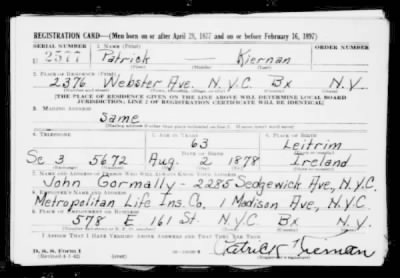 REGISTRATION CARD—(Men born on or after April 28, 1877 and on or before February 16, 1897)
SERIAL NUMBER 1. NAME (Print)
U 2377 Patrick — Kiernan
(First) (Middle) (Last)
2. PLACE OF RESIDENCE (Print)
2376 Webster Ave. N.Y.C. Bx N.Y.
[THE PLACE OF RESIDENCE GIVEN ON THE LINE ABOVE WILL DETERMINE LOCAL BOARD
JURISDICTION; LINE 2 OF REGISTRATION CERTIFICATE WILL BE IDENTICAL]
3. MAILING ADDRESS
Same
4. TELEPHONE 5. AGE IN YEARS 6. PLACE OF BIRTH
63 Leitrim
DATE OF BIRTH
Se 3 5672 Aug. 2 1878 Ireland
7. NAME AND ADDRESS OF PERSON WHO WILL ALWAYS KNOW YOUR ADDRESS
John Gormally - 2285 Sedgewick Ave, N.Y.C.
8. EMPLOYER'S NAME AND ADDRESS
Metropolitan Life Ins. Co. 1 Madison Ave, N.Y.C.
9. PLACE OF EMPLOYMENT OR BUSINESS
578 E 161 St. N.Y.C Bx N.Y.
I AFFIRM THAT I HAVE VERIFIED ABOVE ANSWERS AND THAT THEY ARE TRUE.
D. S. S. Form 1
(Revised 4-1-42) (over)
Patrick Kiernan